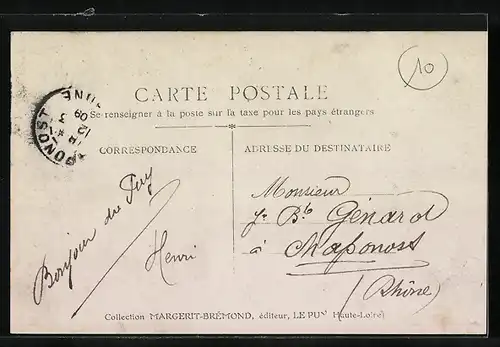 10
CARTE POSTALE
Se renseigner à la poste sur la taxe pour les pays étrangers
PONOST
12
3
09
CORRESPONDANCE
Bonjour du Puy
Henri
ADRESSE DU DESTINATAIRE
Monsieur
Jn Bte Génard
à Chaponost
(Rhône)
Collection MARGERIT-BRÉMOND, éditeur, LE PUY (Haute-Loire)